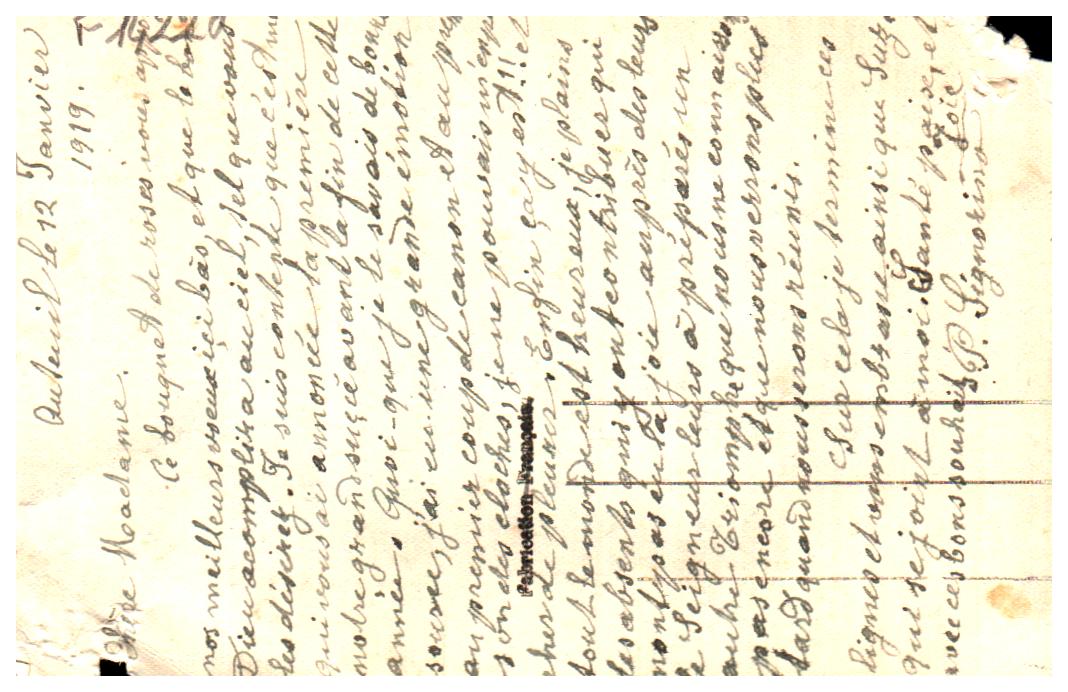 F 14220
Auteuil le 12 Janvier
1919.
Chère Madame.
Ce bouquet de roses vous app
nos meilleurs voeux içi bâs et que le bon
Dieu acomplira au ciel, tel que vous
les désirez. Je suis contente que c'est m
qui vous ai annonée la première
notre grand suçcè avant la fin de cette
année. Quoi-que je le savais de bonne
source, j'ai eu une grande émotion
au premier coup de canon et au pre
son des cloches, je ne pouvais m'emp
cher de pleurer. Enfin ça y est!! et
tout le monde est heureux, je plains
les absents qui y ont contribués qui
n'ont pas eu la joie auprès des leurs
le Seigneur leurs à préparés un
autre Triomphe que nous ne connaisso
pas encore et que nous verrons plus
tard quand nous serons réunis.
Sur cela je termine ces
lignes et vous embrasse ainsi que Suz
qui se joint à moi. Santé paix, et
avec ces bons souhaits Joie
P. Signorino
Fabrication Française